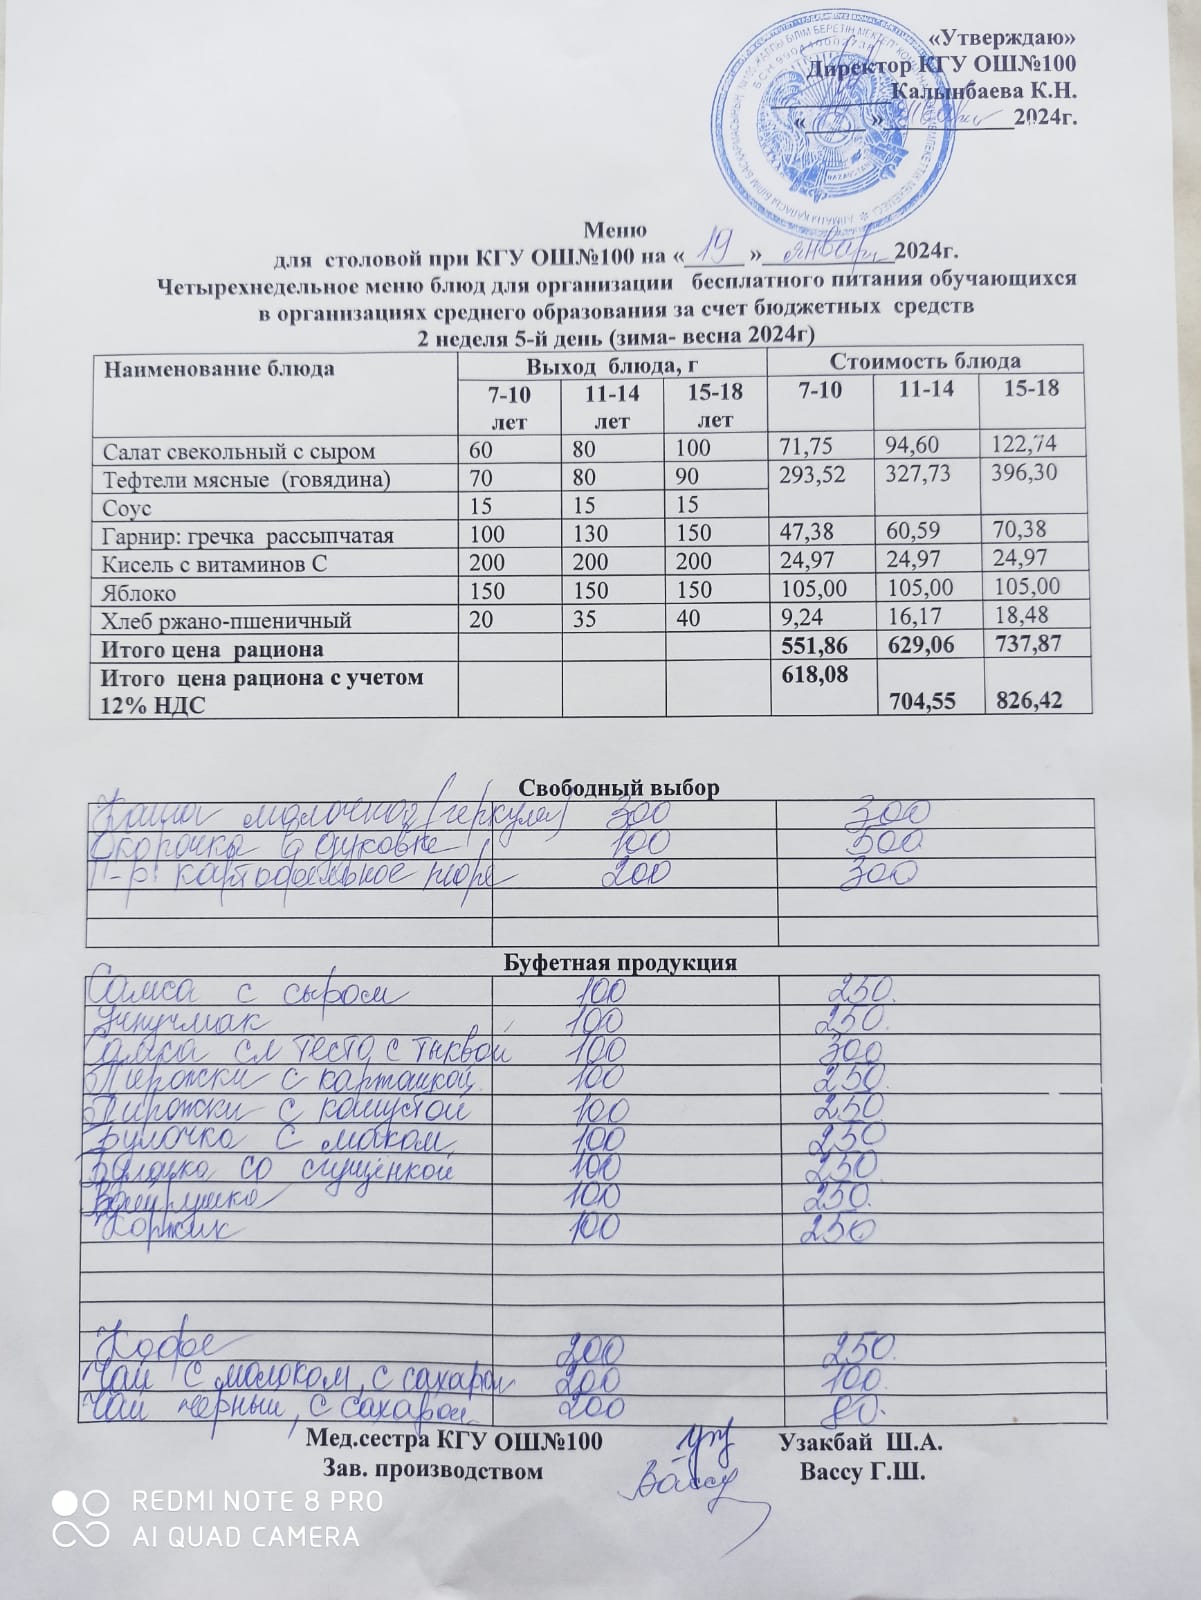 «Утверждаю»
Директор КГУ ОШ№100
Калынбаева К.Н.
«_____»__________2024г.
Меню
для столовой при КГУ ОШ№100 на «19» январь 2024г.
Четырехнедельное меню блюд для организации бесплатного питания обучающихся
в организациях среднего образования за счет бюджетных средств
2 неделя 5-й день (зима- весна 2024г)
Наименование блюда Выход блюда, г Стоимость блюда
7-10 лет 11-14 лет 15-18 лет 7-10 11-14 15-18
Салат свекольный с сыром 60 80 100 71,75 94,60 122,74
Тефтели мясные (говядина) 70 80 90 293,52 327,73 396,30
Соус 15 15 15
Гарнир: гречка рассыпчатая 100 130 150 47,38 60,59 70,38
Кисель с витаминов С 200 200 200 24,97 24,97 24,97
Яблоко 150 150 150 105,00 105,00 105,00
Хлеб ржано-пшеничный 20 35 40 9,24 16,17 18,48
Итого цена рациона 551,86 629,06 737,87
Итого цена рациона с учетом 12% НДС 618,08 704,55 826,42
Свободный выбор
Каша молочная (геркулес) 300 300
Окорочка в духовке 100 500
Г-р картофельное пюре 200 300
Буфетная продукция
Самса с сыром 100 250.
Учпучмак 100 250.
Самса сл тесто с тыквой 100 300
Пирожки с картошкой 100 250.
Пирожки с капустой 100 250
Булочка с маком 100 250
Булочка со сгущенкой 100 250
Ватрушка 100 250.
Коржик 100 250
Кофе 200 250.
Чай с молоком, с сахаром 200 100.
Чай черный, с сахаром 200 80.
Мед.сестра КГУ ОШ№100 Узакбай Ш.А.
Зав. производством Вассу Вассу Г.Ш.
REDMI NOTE 8 PRO
AI QUAD CAMERA